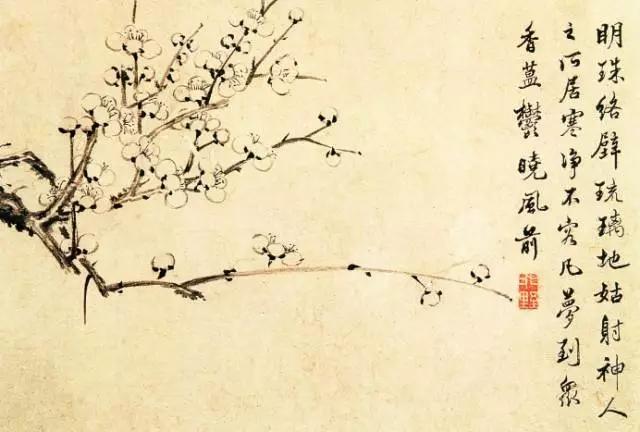 明珠絡壁琉璃地姑射神人
之所居寒淨不容凡夢到眾
香鬱曉風前